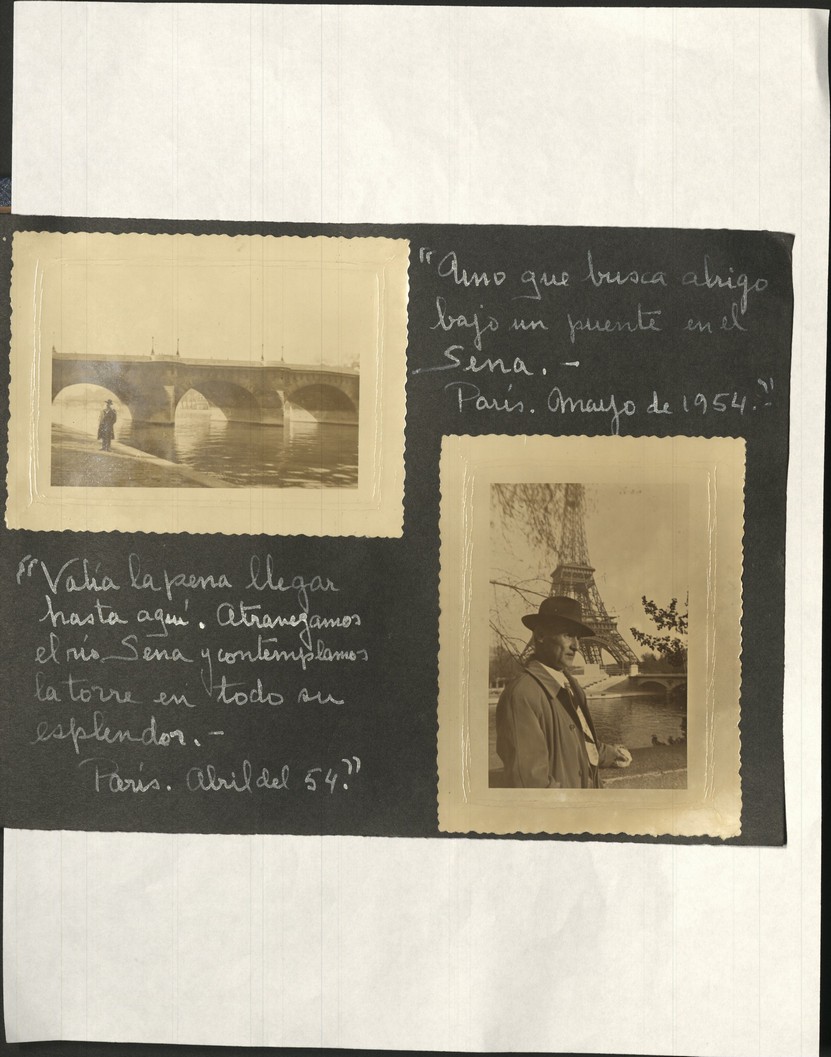 "Amo que busca abrigo
bajo un puente en el
Sena.-
París. Mayo de 1954."
"Valía la pena llegar
hasta aquí. Atravezamos
el río Sena y contemplamos
la torre en todo su
esplendor.-
París. Abril del 54."